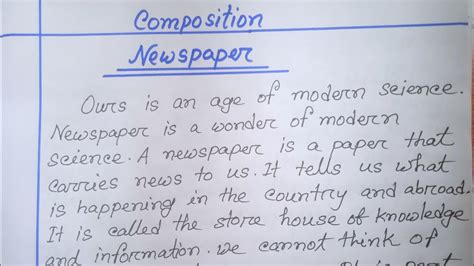 Composition
Newspaper
Ours is an age of modern science.
Newspaper is a wonder of modern
science. A newspaper is a paper that
carries news to us. It tells us what
is happening in the country and abroad.
It is called the store house of knowledge
and information. We cannot think of